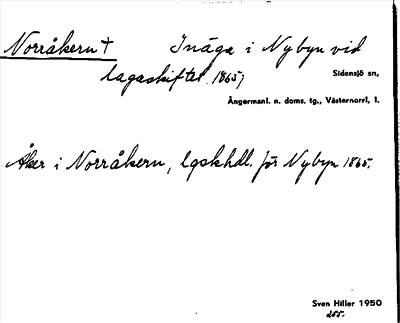 Norråkern † Inäga i Nybyn vid
lagaskiftet 1865,
Sidensjö sn,
Ångermanl. n. doms. tg., Västernorrl, l.
Åker i Norråkern, lgskhdl. för Nybyn 1865.
Sven Hiller 1950
255.